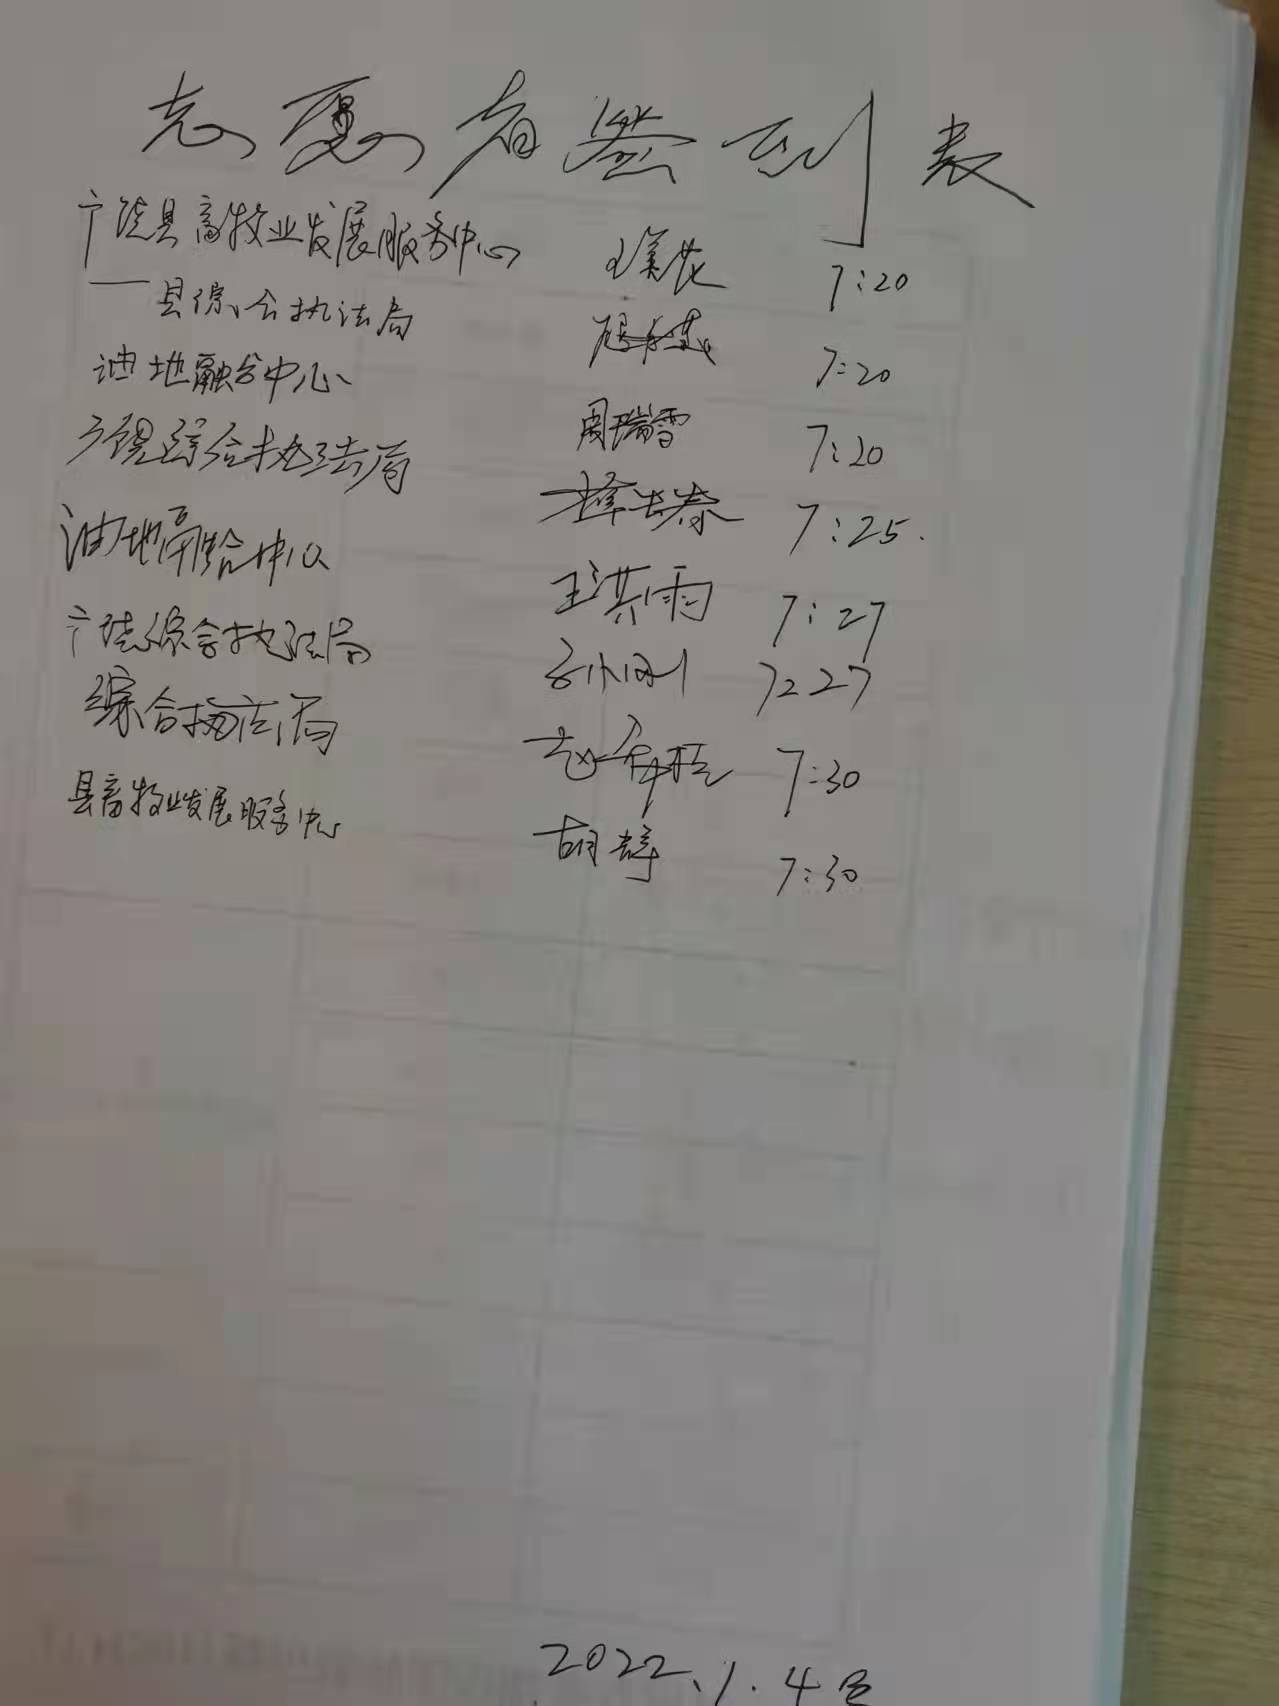 志愿者签到表
广饶县畜牧业发展服务中心 王美花 7:20
一县综合执法局 7:20
油地融合中心 周瑞雪 7:20
广饶综合执法局 7:25.
油地融合中心 王洪雨 7:27
广饶综合执法局 孙刚 7:27
综合执法局 7:30
县畜牧业发展服务中心 胡 7:30
2022.1.4号